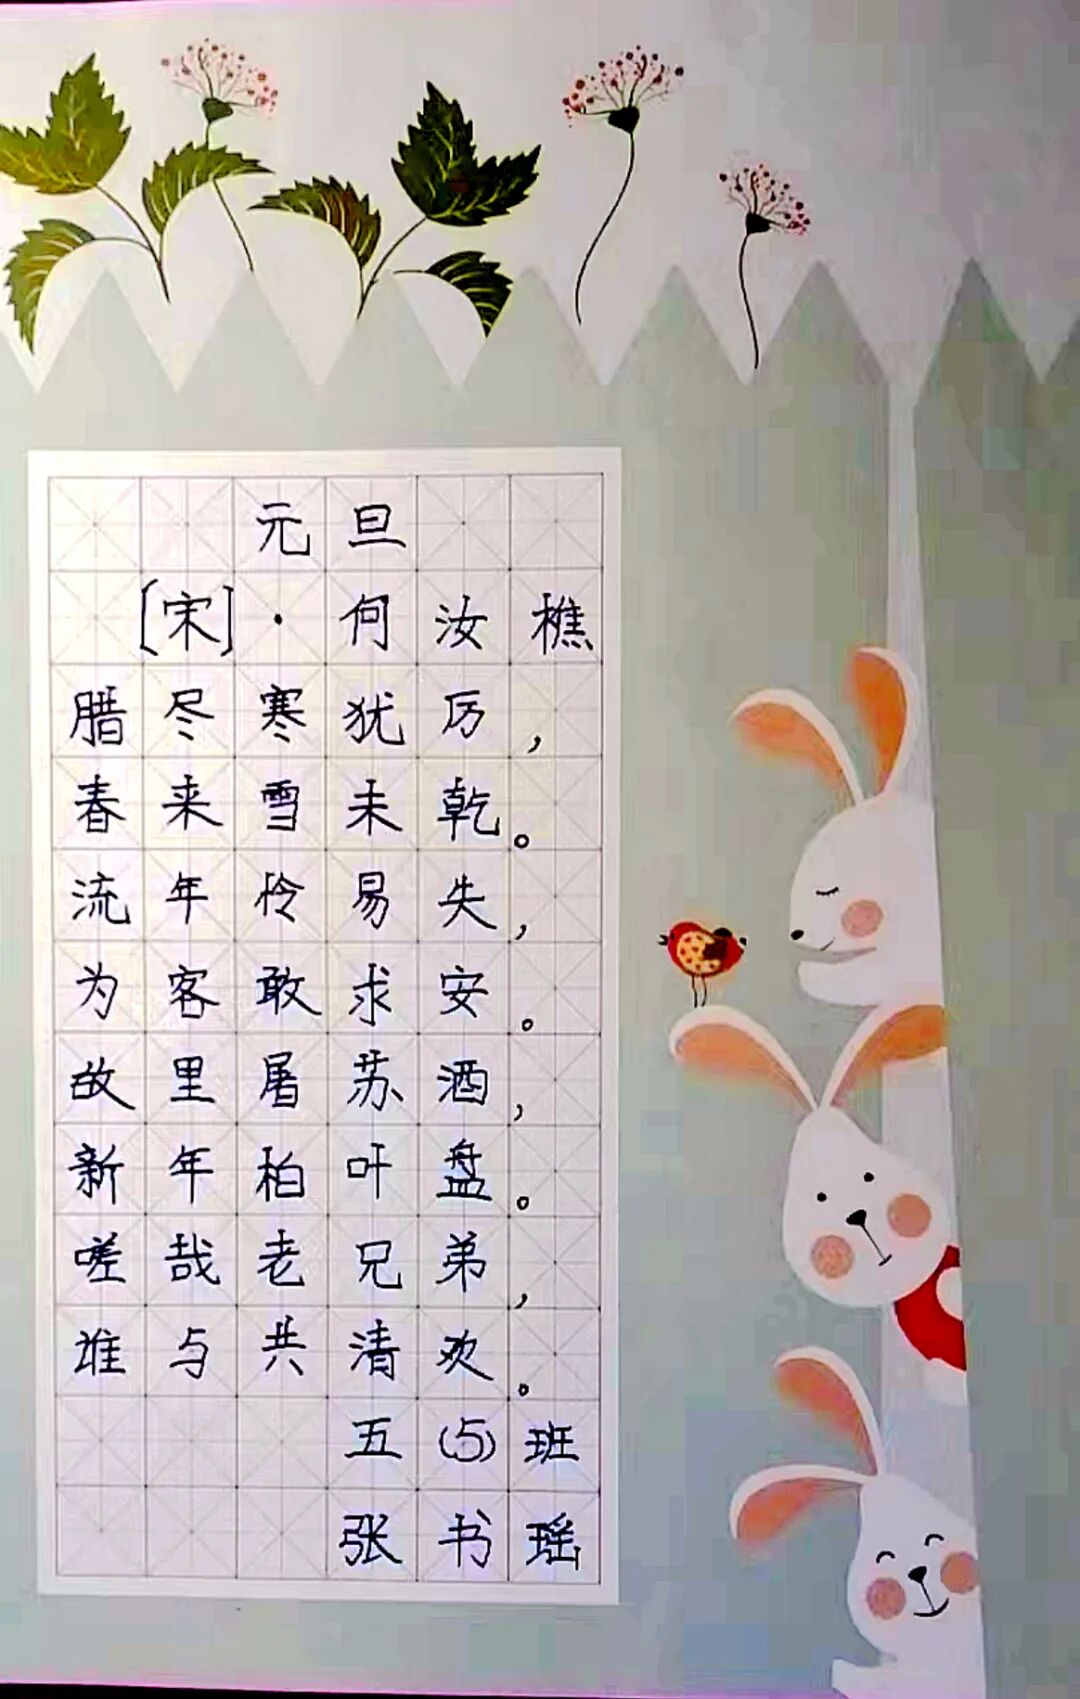 元旦
[宋]·何汝樵
腊尽寒犹厉，
春来雪未乾。
流年怜易失，
为客敢求安。
故里屠苏酒，
新年柏叶盘。
嗟哉老兄弟，
谁与共清欢。
五(5)班
张书瑶